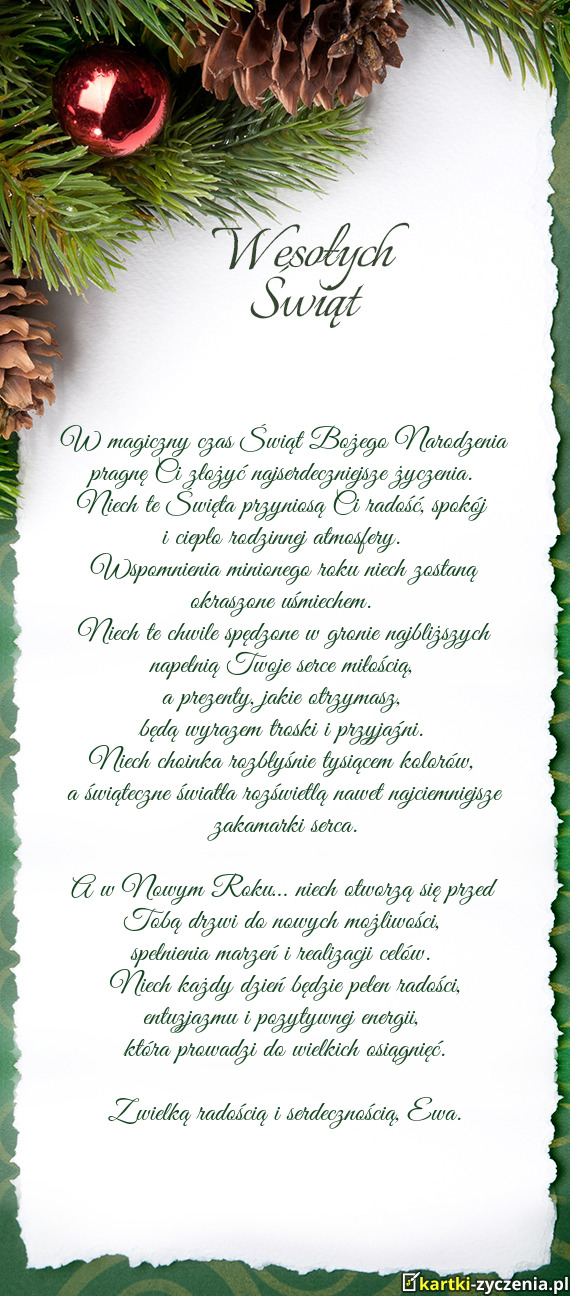 Wesołych
Świąt
W magiczny czas Świąt Bożego Narodzenia
pragnę Ci złożyć najserdeczniejsze życzenia.
Niech te Święta przyniosą Ci radość, spokój
i ciepło rodzinnej atmosfery.
Wspomnienia minionego roku niech zostaną
okraszone uśmiechem.
Niech te chwile spędzone w gronie najbliższych
napełnią Twoje serce miłością,
a prezenty, jakie otrzymasz,
będą wyrazem troski i przyjaźni.
Niech choinka rozbłyśnie tysiącem kolorów,
a świąteczne światła rozświetlą nawet najciemniejsze
zakamarki serca.
A w Nowym Roku... niech otworzą się przed
Tobą drzwi do nowych możliwości,
spełnienia marzeń i realizacji celów.
Niech każdy dzień będzie pełen radości,
entuzjazmu i pozytywnej energii,
która prowadzi do wielkich osiągnięć.
Zwielką radością i serdecznością, Ewa.
kartki-zyczenia.pl